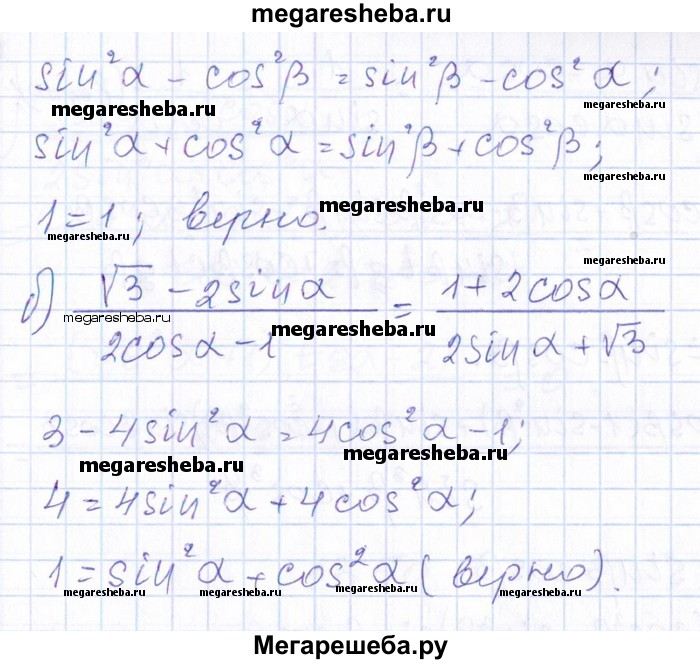 megaresheba.ru
sin²α - cos²β = sin²β - cos²α;
megaresheba.ru megaresheba.ru
sin²α + cos²α = sin²β + cos²β;
1 = 1; верно.
megaresheba.ru megaresheba.ru megaresheba.ru
б) (√3 - 2sinα)/(2cosα - 1) = (1 + 2cosα)/(2sinα + √3)
megaresheba.ru megaresheba.ru megaresheba.ru
3 - 4sin²α = 4cos²α - 1;
megaresheba.ru megaresheba.ru
4 = 4sin²α + 4cos²α;
1 = sin²α + cos²α (верно).
megaresheba.ru megaresheba.ru megaresheba.ru
Мегарешеба.ру